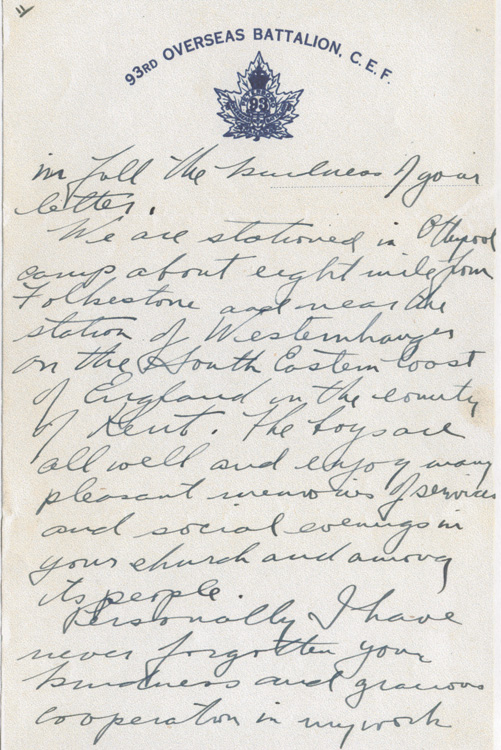 93RD OVERSEAS BATTALION, C.E.F.
93
in full the kindness of your
letter.
We are stationed in Otterpool
camp about eight miles from
Folkestone and near the
station of Westernhanger
on the South Eastern Coast
of England in the county
of Kent. The boys are
all well and enjoy many
pleasant memories of services
and social evenings in
your church and among
its people.
Personally I have
never forgotten your
kindness and gracious
cooperation in my work